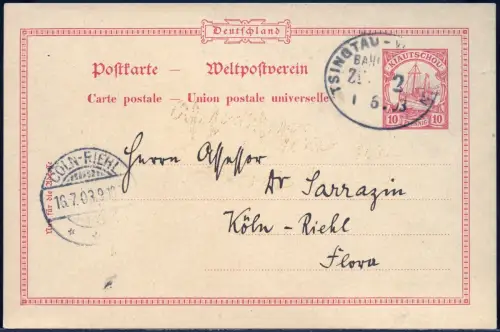 Deutschland
Postkarte — Weltpostverein
Carte postale — Union postale universelle
KIAUTSCHOU
10 10
TSINGTAU -
BAH
2
1 6 03
CÖLN-RIEHL
16.7.03.9-10
Nur für die Adresse
Herrn Assessor
Dr Sarrazin
Köln - Riehl
Flora